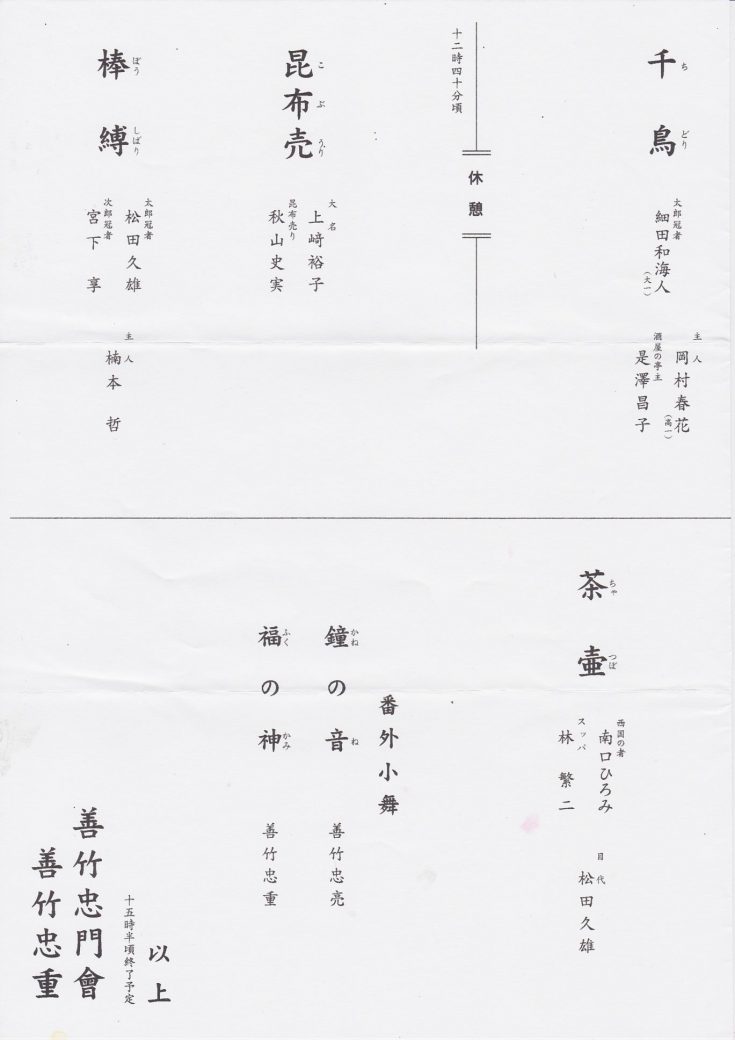 千鳥
ちどり
太郎冠者
細田和海人
(大一)
主人
岡村春花
(高一)
酒屋の亭主
是澤昌子
休憩
十二時四十分頃
昆布売
こぶうり
大名
上﨑裕子
昆布売り
秋山史実
棒縛
ぼうしばり
太郎冠者
松田久雄
次郎冠者
宮下享
主人
楠本哲
茶壷
ちゃつぼ
西国の者
南口ひろみ
スッパ
林繁二
目代
松田久雄
番外小舞
鐘の音
かね ね
善竹忠亮
福の神
ふく かみ
善竹忠重
以上
十五時半頃終了予定
善竹忠門會
善竹忠重